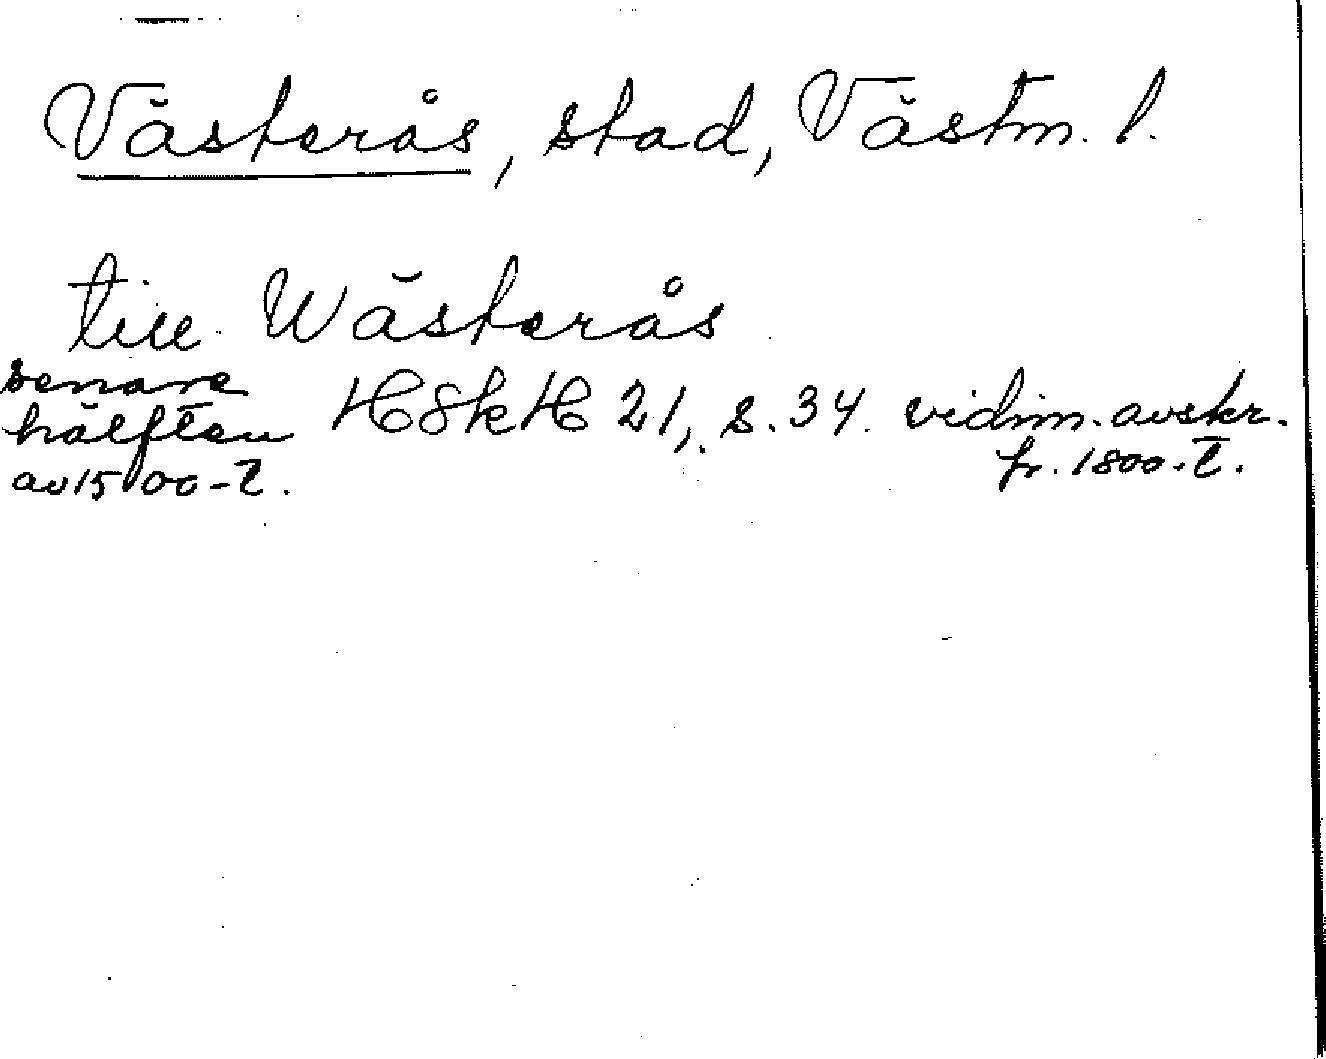 Västerås, stad, Västm. l.
till Wästerås
senare
hälften HSkH 21, s. 34. vidim. avskr.
av 1500-t. fr. 1800-t.